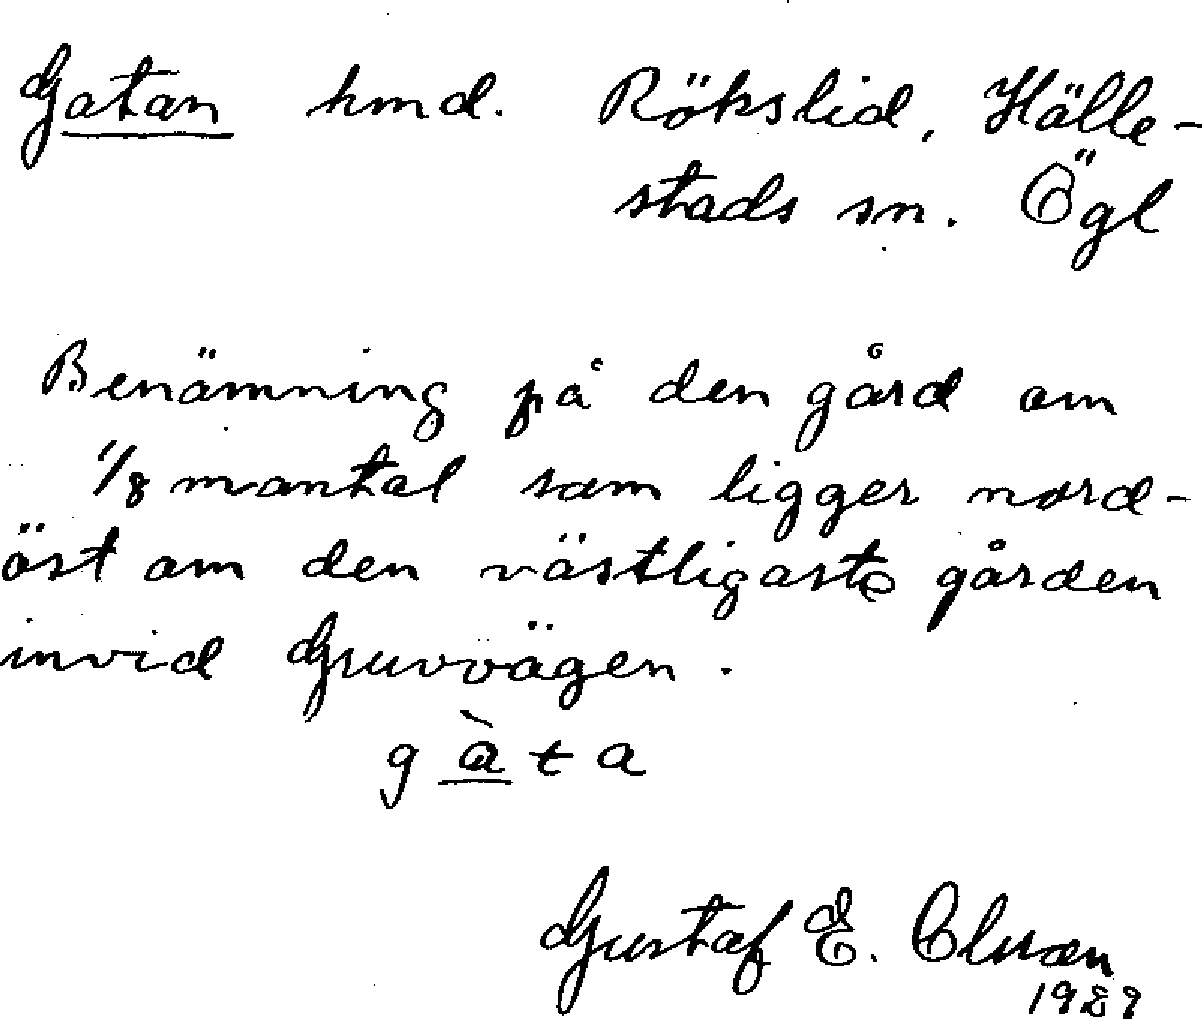 Gatan hmd. Rökslid, Hälle-
stads sn. Ögl
Benämning på den gård om
1/8 mantal som ligger nord-
öst om den västligaste gården
invid Gruvvägen.
gàta
Gustaf E.